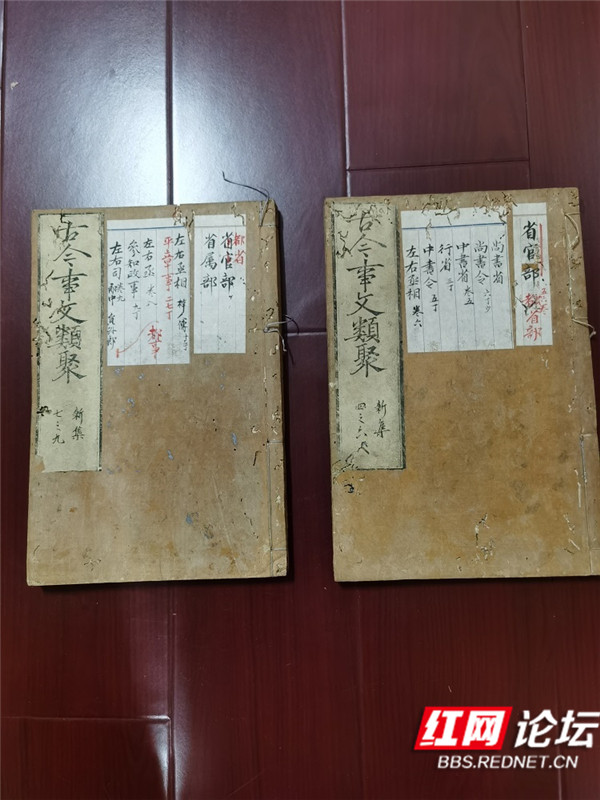 古今事文類聚
新集
七之九
都省
省官部
省属部
左右丞相
平章事
左右丞
参知政事
左右司
古今事文類聚
新集
四之六
省官部
尚書省
尚書令
中書省 卷五
行省
中書令 五丁
左右丞相 卷六
红网论坛
BBS.REDNET.CN